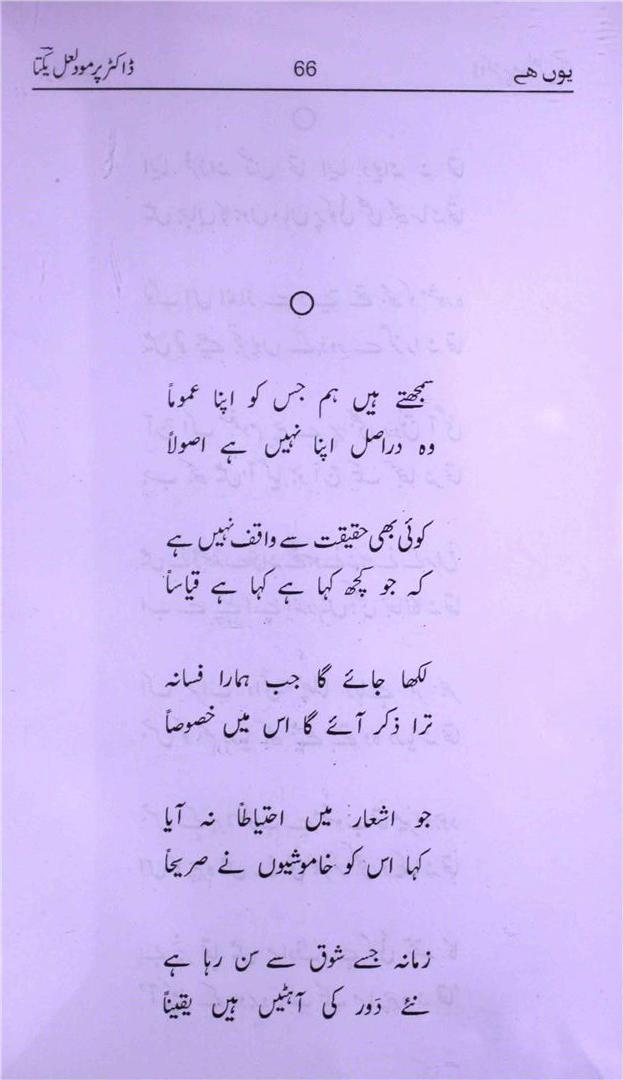 یوں ھے 66 ڈاکٹر پرمود لعل یکتا
سمجھتے ہیں ہم جس کو اپنا عموماً
وہ دراصل اپنا نہیں ہے اصولاً
کوئی بھی حقیقت سے واقف نہیں ہے
کہ جو کچھ کہا ہے کہا ہے قیاساً
لکھا جائے گا جب ہمارا فسانہ
ترا ذکر آئے گا اس میں خصوصاً
جو اشعار میں احتیاطاً نہ آیا
کہا اس کو خاموشیوں نے صریحاً
زمانہ جسے شوق سے سن رہا ہے
نئے دَور کی آہٹیں ہیں یقیناً